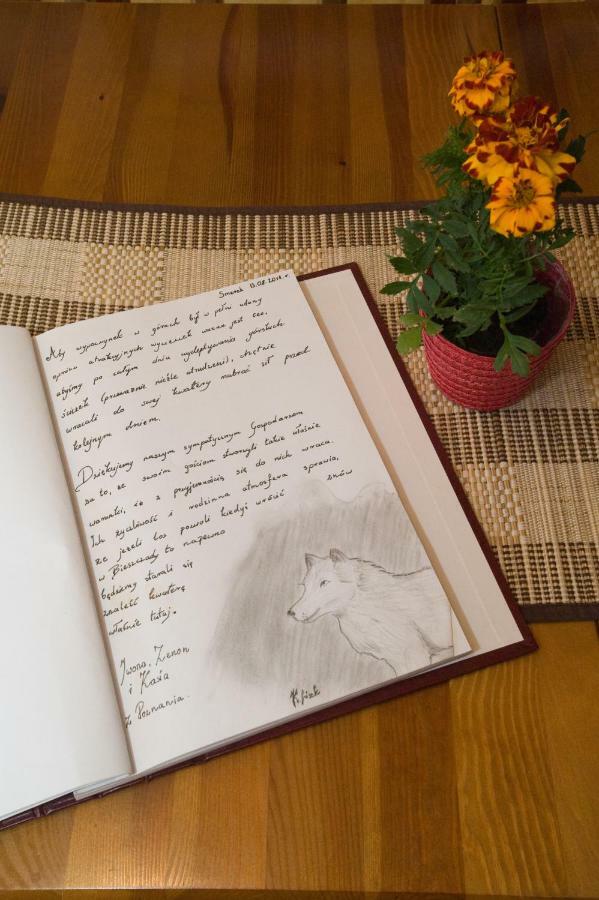 Smerek 13.08.2018 r.
Aby wypoczynek w górach był w pełni udany
oprócz atrakcyjnych wycieczek ważne jest też,
abyśmy po całym dniu wydeptywania górskich
ścieżek (przeważnie nieźle utrudzeni), chętnie
wracali do swej kwatery nabrać sił przed
kolejnym dniem.
Dziękujemy naszym sympatycznym Gospodarzom
za to, że swoim gościom stworzyli takie właśnie
warunki, iż z przyjemnością się do nich wraca.
Ich życzliwość i rodzinna atmosfera sprawia,
że jeżeli los pozwoli kiedyś wrócić znów
w Bieszczady to na pewno
będziemy starali się
znaleźć kwaterę
właśnie tutaj.
Iwona, Zenon
i Kasia
z Poznania.